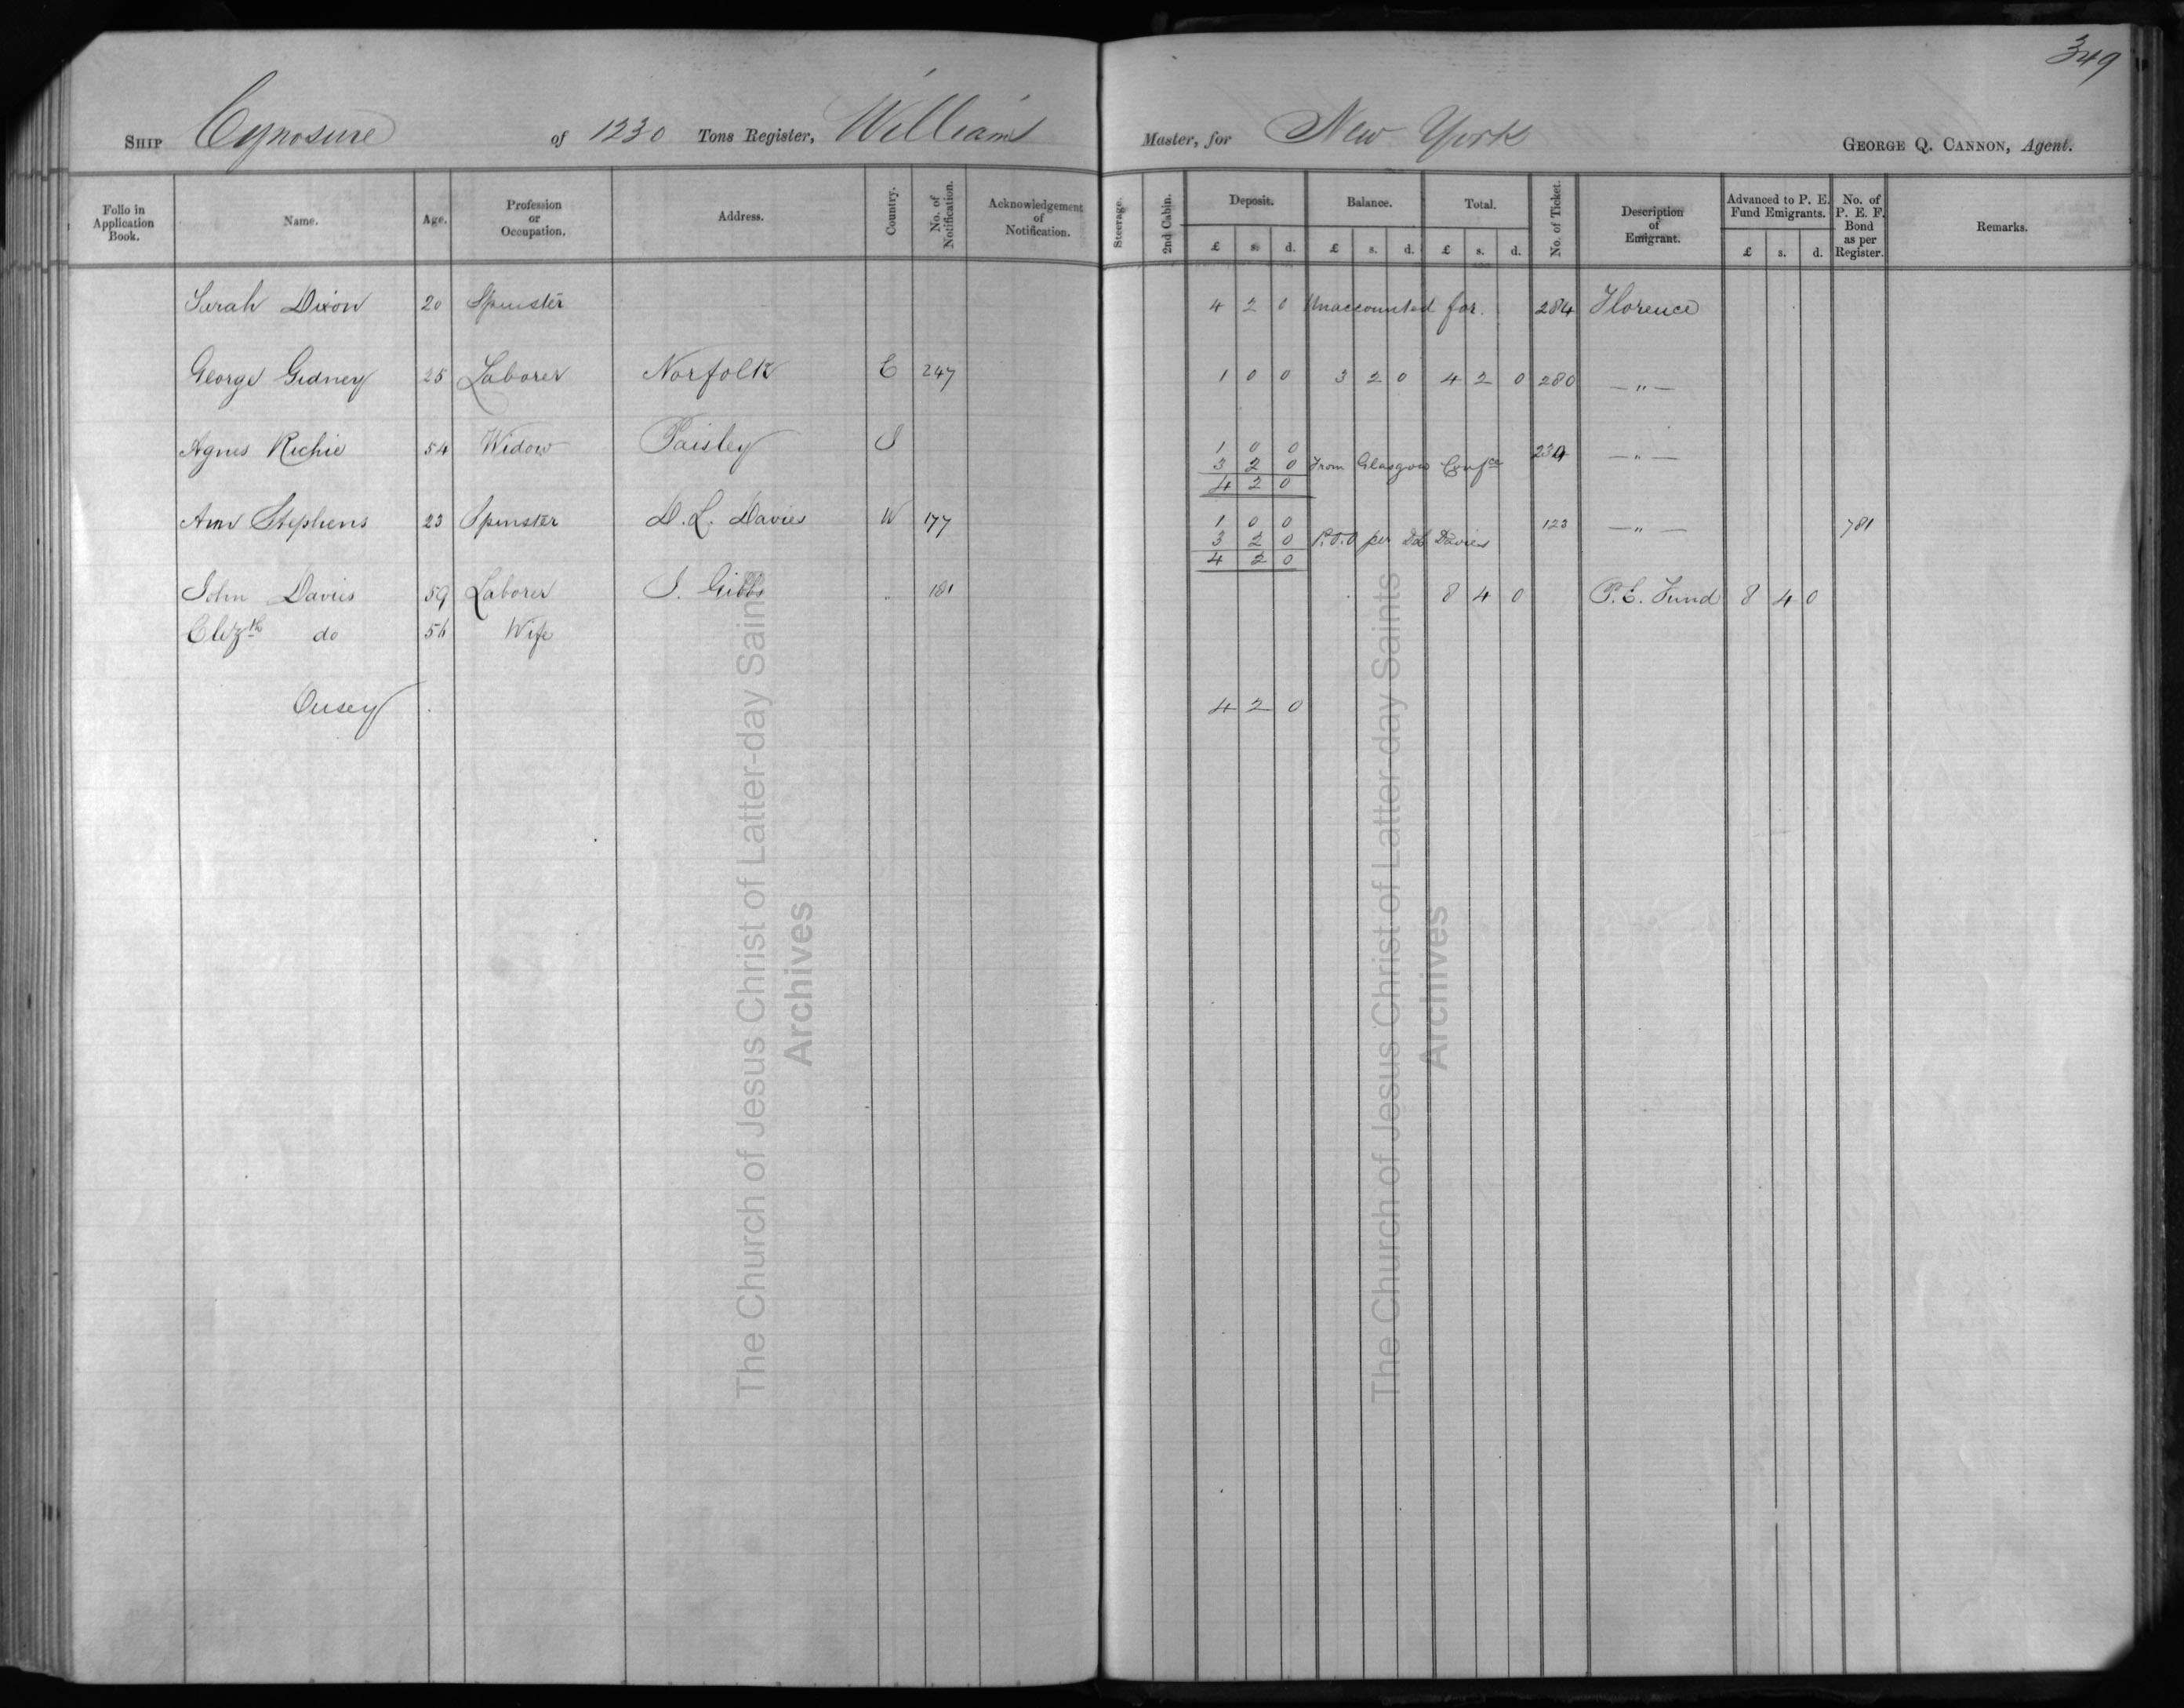 349
Ship Cynosure of 1230 Tons Register, Williams Master, for New York George Q. Cannon, Agent.
Folio in Application Book. Name. Age. Profession or Occupation. Address. Country. No. of Notification. Acknowledgement of Notification. Steerage. 2nd Cabin. Deposit. Balance. Total. No. of Ticket. Description of Emigrant. Advanced to P. E. Fund Emigrants. No. of P. E. F. Bond as per Register. Remarks.
£ s. d. £ s. d. £ s. d. £ s. d.
Sarah Dixon 20 Spinster 4 2 0 Unaccounted for. 284 Florence
George Gidney 25 Laborer Norfolk E 247 1 0 0 3 2 0 4 2 0 280 — " —
Agnes Richie 54 Widow Paisley S 1 0 0 239 — " —
3 2 0 From Glasgow Confce
4 2 0
Ann Stephens 23 Spinster D. L. Davies W 177 1 0 0 123 — " — 781
3 2 0 P.O.O per Davies
4 2 0
John Davies 59 Laborer J. Gibbs " 181 8 4 0 P. E. Fund 8 4 0
Elizth do 56 Wife
Ousey 4 2 0
The Church of Jesus Christ of Latter-day Saints
Archives
The Church of Jesus Christ of Latter-day Saints
Archives